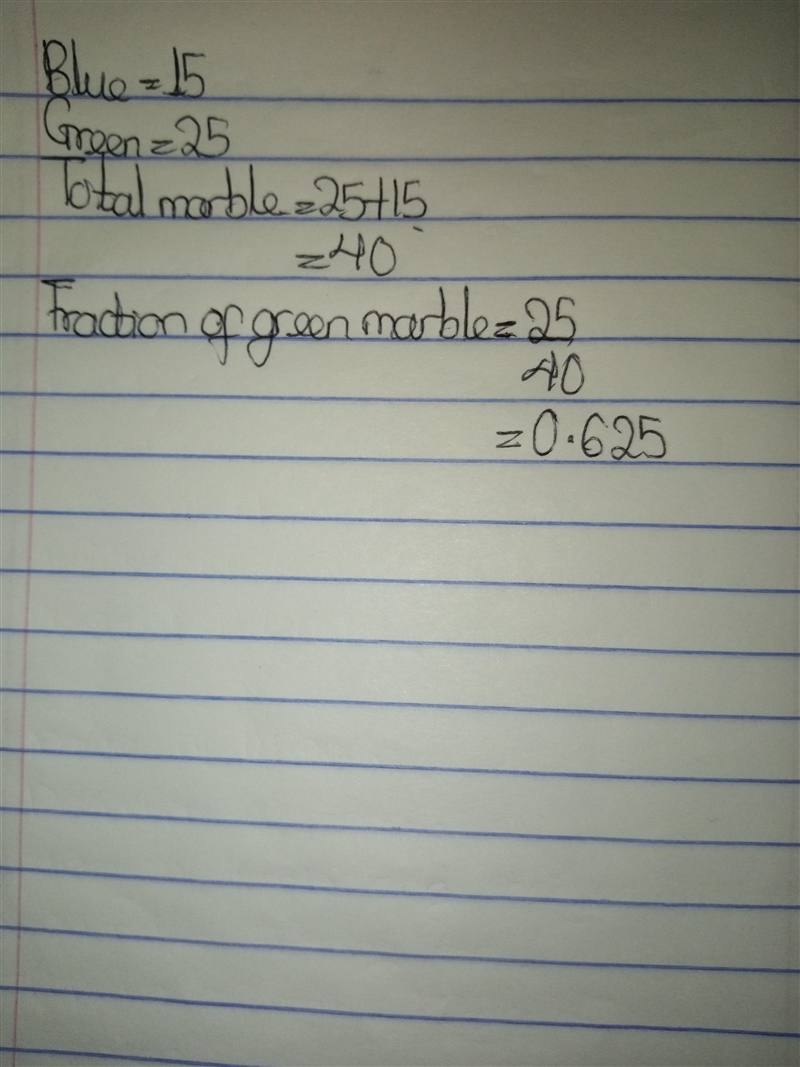 Blue = 15
Green = 25
Total marble = 25+15
= 40
Fraction of green marble = 25
40
= 0.625